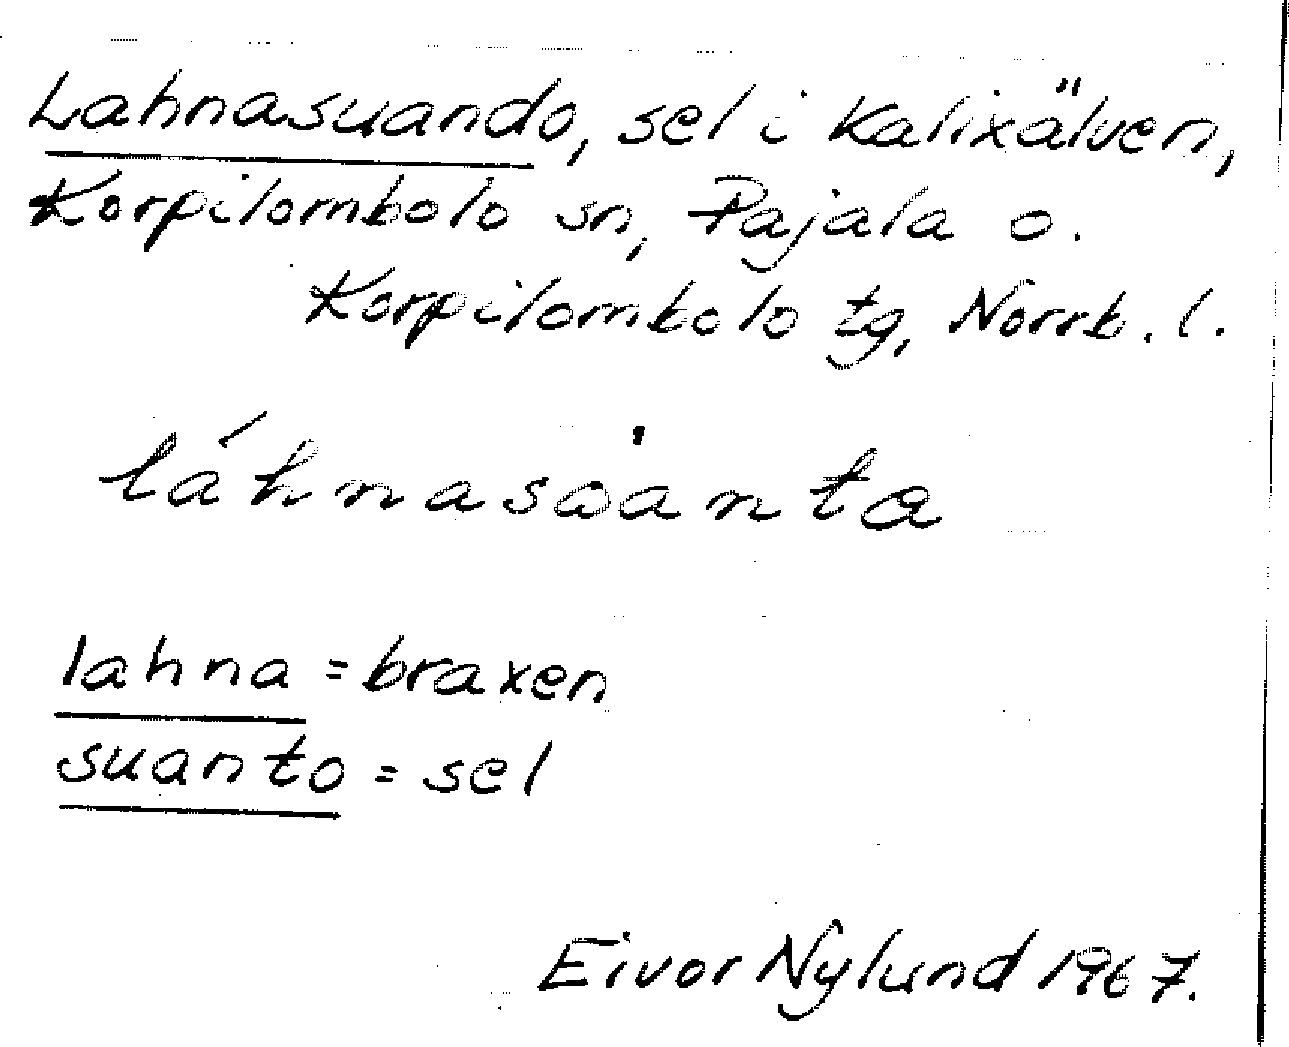 Lahnasuando, sel i Kalixälven,
Korpilombolo sn, Pajala o.
Korpilombolo tg, Norrb. l.
láhnasoànta
lahna = braxen
suanto = sel
Eivor Nylund 1967.